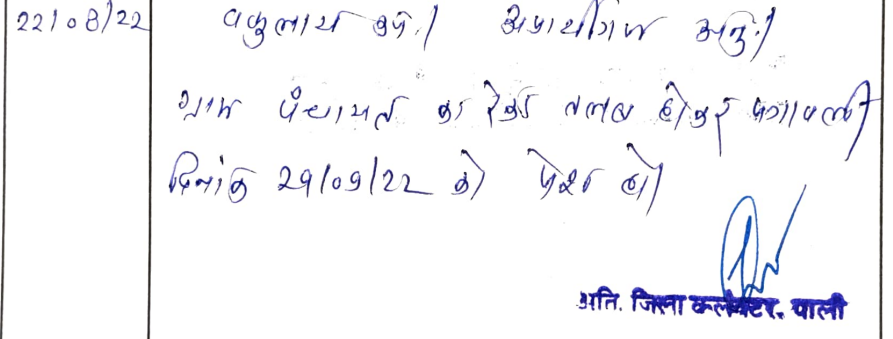 22/08/22 वकुलाय उप.। अप्रार्थीगण अनु.।
ग्राम पंचायत का रेकर्ड तलब होकर पत्रावली
दिनांक 29/09/22 को पेश हो।
अति. जिला कलेक्टर, पाली